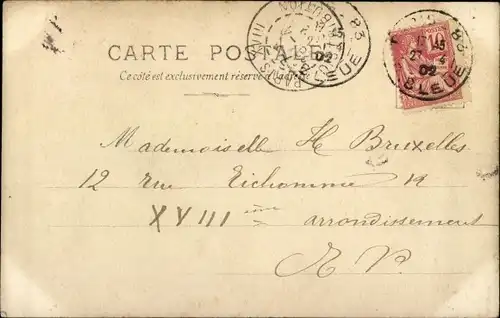 CARTE POSTALE
Ce côté est exclusivement réservé à l'adresse
PARIS XVIII
15
02
PARIS 83
15
4
02
R. BLEUE
10
Mademoiselle H Bruxelles
12 Rue Eichomme 12
XVIII ème arrondissement
E. V.